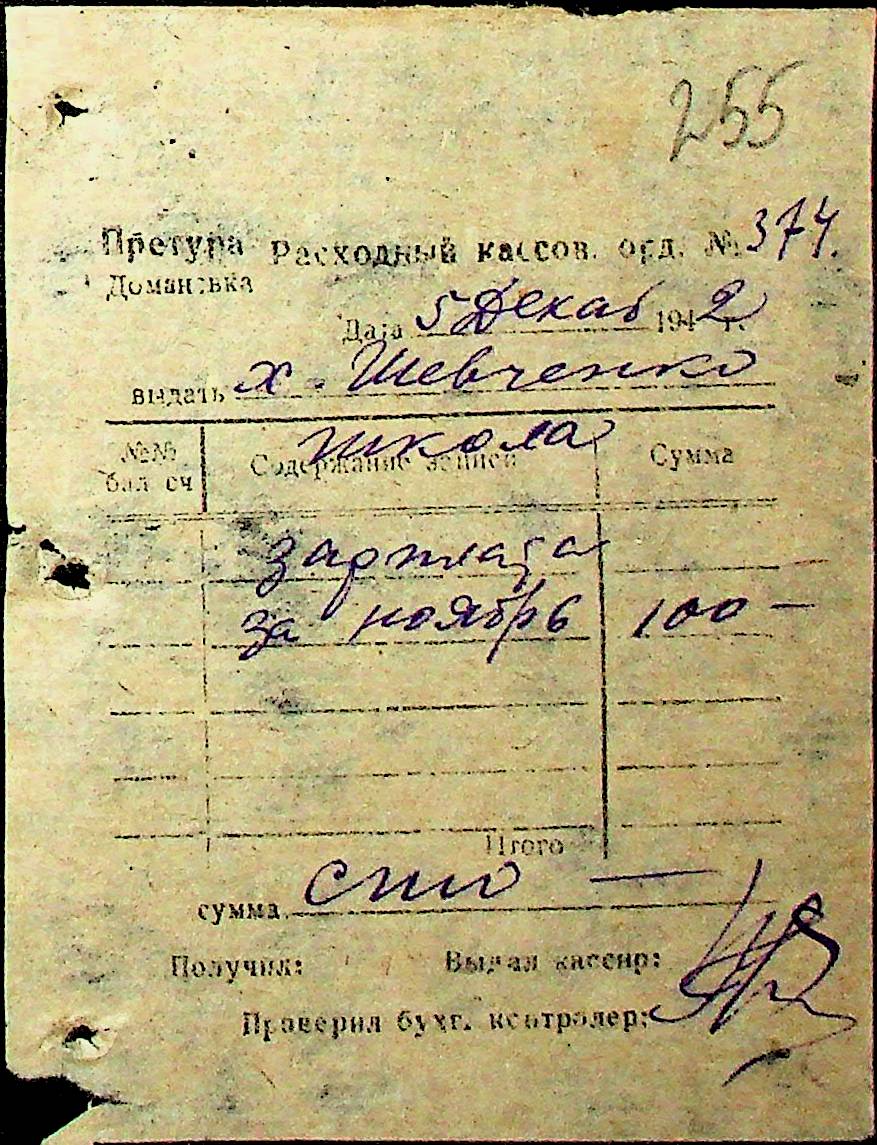 255
Претура Расходный кассов. орд. № 374.
Домановка
Дата 5 Декаб 1942 г.
выдать х. Шевченко
школа
№№ Содержание записи Сумма
бал сч
зарплата
за ноябрь 100 —
Итого
сумма сто —
Получил: Выдал кассир:
Проверил бухг. контролер: